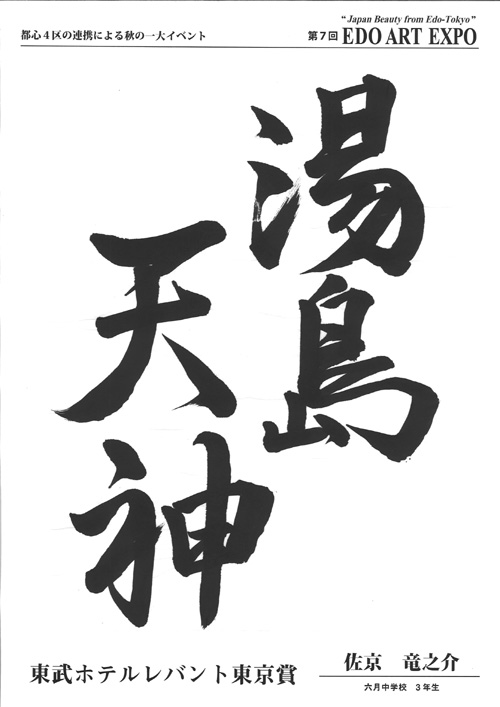 都心4区の連携による秋の一大イベント
“Japan Beauty from Edo-Tokyo”
第7回 EDO ART EXPO
湯島
天神
東武ホテルレバント東京賞
佐京　竜之介
六月中学校　3年生